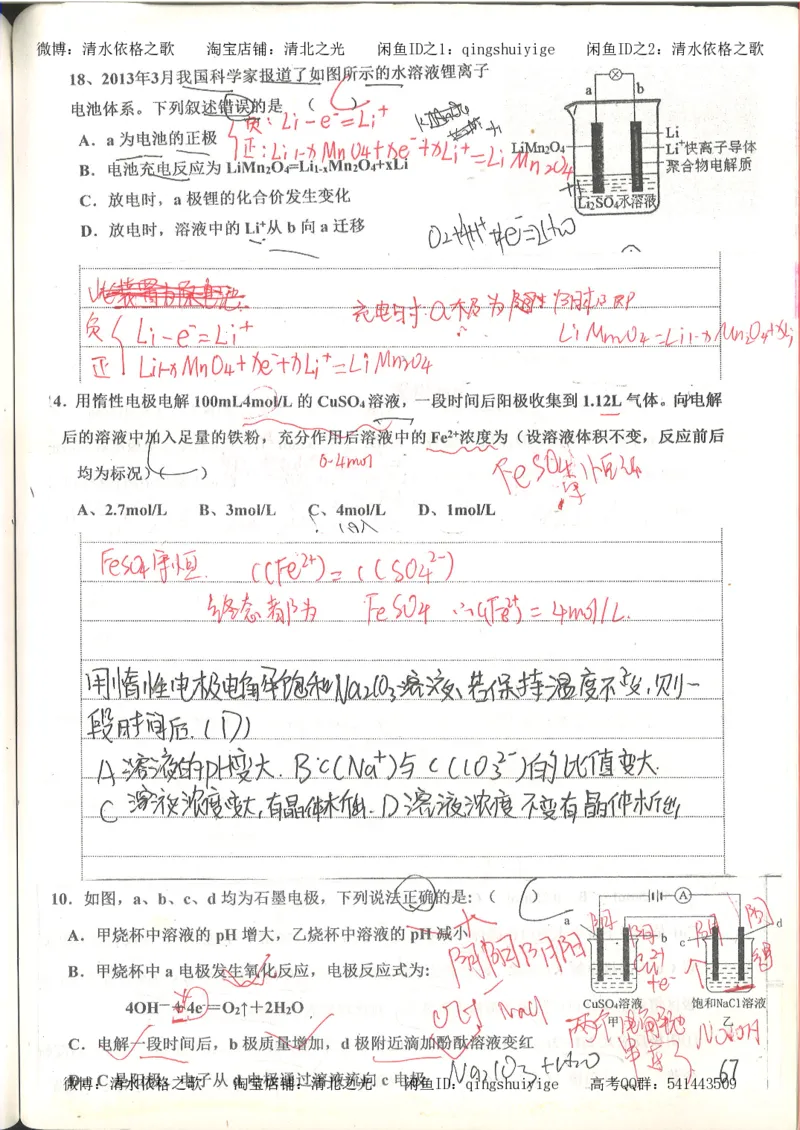 微博：清水依格之歌 淘宝店铺：清北之光 闲鱼ID之1：qingshuiyige 闲鱼ID之2：清水依格之歌
18、2013年3月我国科学家报道了如图所示的水溶液锂离子
电池体系。下列叙述错误的是 （ C ）
负：Li-e⁻=Li⁺
A．a为电池的正极
正：Li₁₋ₓMn₂O₄+xe⁻+xLi⁺=LiMn₂O₄
B．电池充电反应为 LiMn₂O₄=Li₁₋ₓMn₂O₄+xLi
C．放电时，a极锂的化合价发生变化
D．放电时，溶液中的Li⁺从b向a迁移
a b
LiMn₂O₄
Li
Li⁺快离子导体
聚合物电解质
Li₂SO₄水溶液
O₂+4H⁺+4e⁻=2H₂O
负 Li-e⁻=Li⁺
正 Li₁₋ₓMnO₄+xe⁻+xLi⁺=LiMn₂O₄
充电时：a极为阳
LiMn₂O₄=Li₁₋ₓMn₂O₄+xLi
4．用惰性电极电解 100mL4mol/L 的 CuSO₄溶液，一段时间后阳极收集到 1.12L 气体。向电解
后的溶液中加入足量的铁粉，充分作用后溶液中的 Fe²⁺浓度为（设溶液体积不变，反应前后
0.4mol
均为标况）（ ）
FeSO₄
A、2.7mol/L B、3mol/L C、4mol/L D、1mol/L
FeSO₄守恒 C(Fe²⁺)=C(SO₄²⁻)
终态都为 FeSO₄ ∴c(Fe²⁺)=4mol/L.
用惰性电极电解饱和Na₂CO₃溶液、若保持温度不变，则一
段时间后.（D）
A 溶液的pH变大. B c(Na⁺)与c(CO₃²⁻)的比值变大.
C 溶液浓度变大，有晶体析出. D 溶液浓度不变有晶体析出
10．如图，a、b、c、d 均为石墨电极，下列说法正确的是：（ C ）
A．甲烧杯中溶液的 pH 增大，乙烧杯中溶液的 pH 减小
B．甲烧杯中 a 电极发生氧化反应，电极反应式为:
4OH⁻+4e⁻=O₂↑+2H₂O
C．电解一段时间后，b 极质量增加，d 极附近滴加酚酞溶液变红
D．C 是阳极，电子从 d 电极通过溶液流向 c 电极
a b c d
A
CuSO₄溶液 饱和NaCl溶液
甲 乙
阴 阳 阴 阳
Cu²⁺
+e⁻
NaCl
两个电解池
串连了
NaOH
Na₂CO₃+H₂O
67
微博：清水依格之歌 淘宝店铺：清北之光 闲鱼ID：qingshuiyige 高考QQ群：541443509